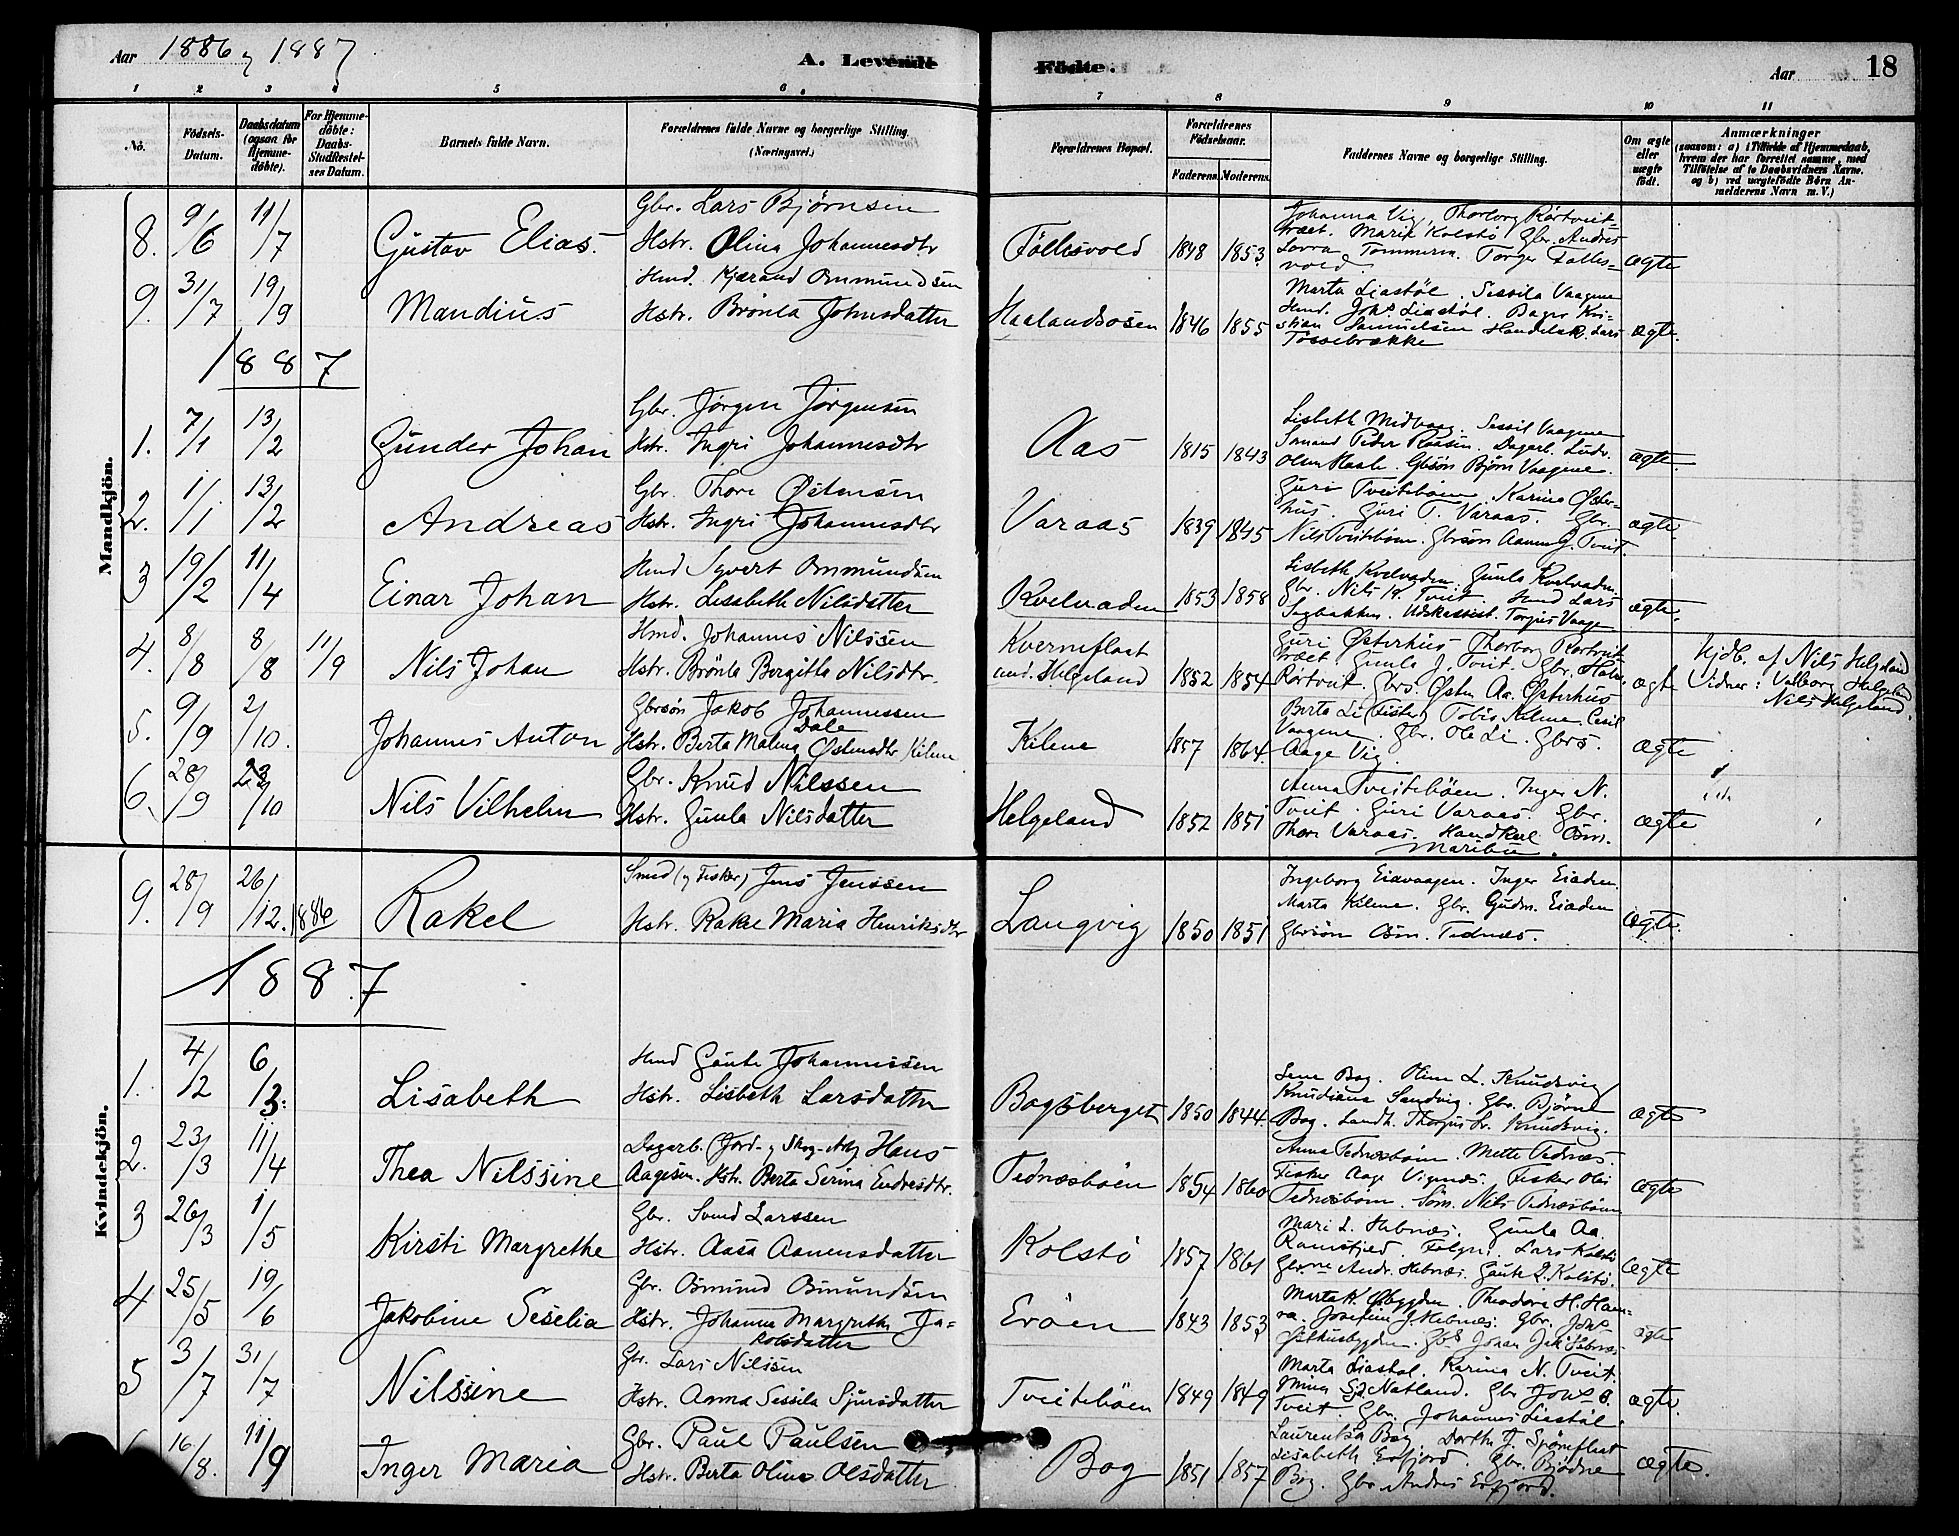 Aar 1886 og 1887
A. Levende Fødte.
Aar 18
1 2 3 4 5 6 7 8 9 10 11
No.
Fødsels-Datum.
Daabsdatum (ogsaa for Hjemmedøbte).
For Hjemmedøbte: Daabs-Stadfæstelses Datum.
Barnets fulde Navn.
Forældrenes fulde Navne og borgerlige Stilling. (Næringsvei.)
Forældrenes Bopæl.
Forældrenes Fødselsaar.
Faderens. Moderens.
Faddernes Navne og borgerlige Stilling.
Om ægte eller uægte født.
Anmærkninger
(saasom: a) i Tilfælde af Hjemmedaab, hvem der har forrettet samme, med Tilføielse af to Daabsvidners Navne, og b) ved uægtefødte Børn Anmelderens Navn m. V.)
Mandkjön.
8. 9/6 11/7 Gustav Elias. Gbr. Lars Bjørnsen Hstr. Olina Johannesdtr Føllesvold 1848 1853 Johanna Vig, Thorborg Rørtveit-træet. Marit Kolstø Gbr. Andres ægte
9. 31/7 19/9 Mandius Hmd. Kjærand Ommundsen Hstr. Brønla Johnsdatter Haalandsosen 1846 1855 Marta Liastøl. Sessila Vaagene Hmd. Johs Liastøl. Bager Kristian Samuelsen Handelsk. Lars Tossebrække ægte.
1887
1. 7/1 13/2 Gunder Johan Gbr. Jørgen Jørgensen Hstr. Ingri Johannesdtr Aas 1815 1843 Lisbeth Midvaag. Sessil Vaagene Gbsøn Bjørn Vaagene. ægte
2. 1/1 13/2 Andreas Gbr. Thore Østensen Hstr. Ingri Johannesdtr Varaas 1839 1845 Guri Tveitebøen. Karina Østerhus. Guri T. Varaas. Gbr. Nils Tveitebøen. Gbrsøn Aamun G. Tveit. ægte
3 19/2 11/4 Einar Johan Hmd Syvert Ommundsen Hstr. Lisabeth Nilsdatter Kvelvaden 1853 1858 Lisbeth Kvelvaden. Gunla Kvelvaden. Gbr. Nils K. Tveit. Hmd Lars Sagbakken. Udskassist. Torgeir Vaage ægte.
4. 8/8 8/8 11/9 Nils Johan Hmd. Johannes Nilssen Hstr. Brønla Bergitta Nilsdtr. Kverneflaat und. Helgeland 1852 1854 Guri Østerhus Thorbor Rørtveit-træet. Gunla J. Tveit. Gbr. Halv. Rørtveit. Gbrs. Østen Aa. Østerhus ægte Hjdb. af Nils Helgeland Vidner: Valborg Helgeland Nils Helgeland.
5. 9/9 2/10. Johannes Anton Gbrsøn Jakob Johannessen Dale Hstr. Berta Malena Østensdtr Kilene Kilene 1857 1864. Berta Li (Fister) Tobia Kilene. Cecil Vaagene. Gbr. Ole Li. Gbrs. Aage Vig. ægte
6. 28/9 23/10 Nils Vilhelm Gbr. Knud Nilssen Hstr. Gunla Nilsdatter Helgeland 1852 1851 Anna Tveitebøen. Inger N. Tveit. Guri Varaas. Gbr. Thore Varaas. Handkarl Osm. Maribu. ægte
Kvindekjön.
9. 28/9 26/12. 1886 Rakel Smed (og Fisker) Jens Jenssen Hstr. Rakel Maria Henriksdtr Langvig 1850 1851 Ingeborg Eidvaagen. Inger Eiaden. Marta Kilene. Gbr. Gudm. Eiaden Gbrsøn Osm. Tednæs. Ægte.
1887
1. 4/2 6/3. Lisabeth Hmd Gaute Johannessen Hstr. Lisbeth Larsdatter Bogsberget 1850 1844. Lene Bog. Oline L. Knudsvig Knudiana Sandvig. Gbr. Bjørne Bog. Landh. Thorgus Lr. Knudsvig. ægte
2. 23/3 11/4 Thea Nilssine Dagarb. (Jord- og Skog-Arb) Hans Aagesen. Hstr. Berta Serina Endresdtr. Tednæsbøen 1854 1860 Anna Tednæsbøen. Mette Tednæs. Fisker Aage Vignæs. Fisker Ole Tednæsbøen. Søm. Nils Tednæsbøen ægte
3 26/3 1/5 Kirsti Margrethe Gbr. Svend Larssen Hstr. Aasa Aanensdatter Kolstø 1857 1861 Mari L. Hebnæs. Gunla Aa. Ramsfjed. Følgm. Lars Kolstø Gbrne Andr. Hebnæs. Gaute L. Kolstø. Ægte
4 25/5 19/6 Jakobine Seselia Gbr. Osmund Osmundsen Hstr. Johanna Margrethe Jakobsdatter Erøen 1843 1853 ægte
5 3/7 31/7 Nilssine Gbr. Lars Nilssen Hstr. Anna Sessila Sjursdatter Tveitebøen 1849 1849 Marta Liastøl. Karina N. Tveit. Mina Sj. Natland. Gbr Johs O. Tveit. Gbr. Johannes Liastøl. ægte.
16/8. 11/9 Inger Maria Gbr. Paul Paulsen Hstr. Berta Oline Olsdatter Bog 1851 1857 Laurentsa Bog Dorth J. Sjørneflaat Lisabeth Erfjord. Gbr. Bjødne Bog. Gbr Andres Erfjord. ægte.